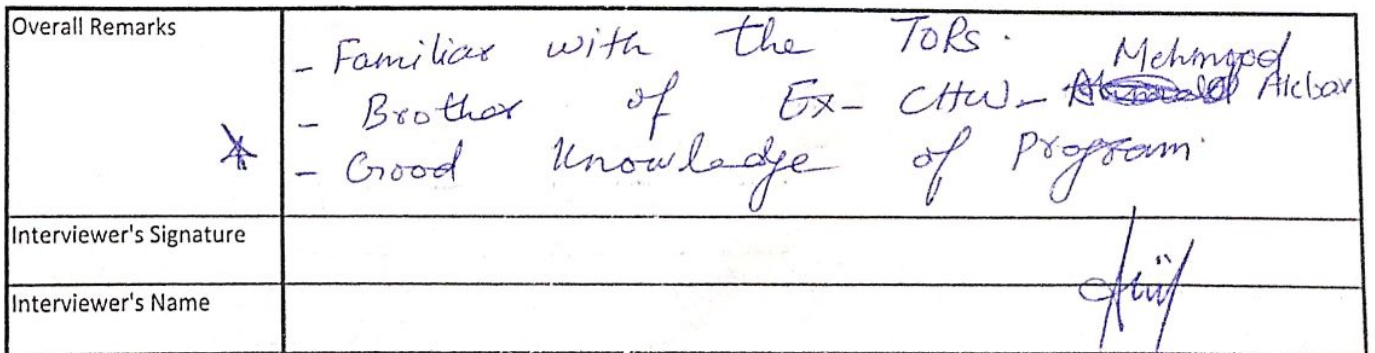 Overall Remarks
- Familiar with the ToRs.
- Brother of Ex- CHW - Mehmood Akbar
- Good Knowledge of Program.
Interviewer's Signature
Interviewer's Name